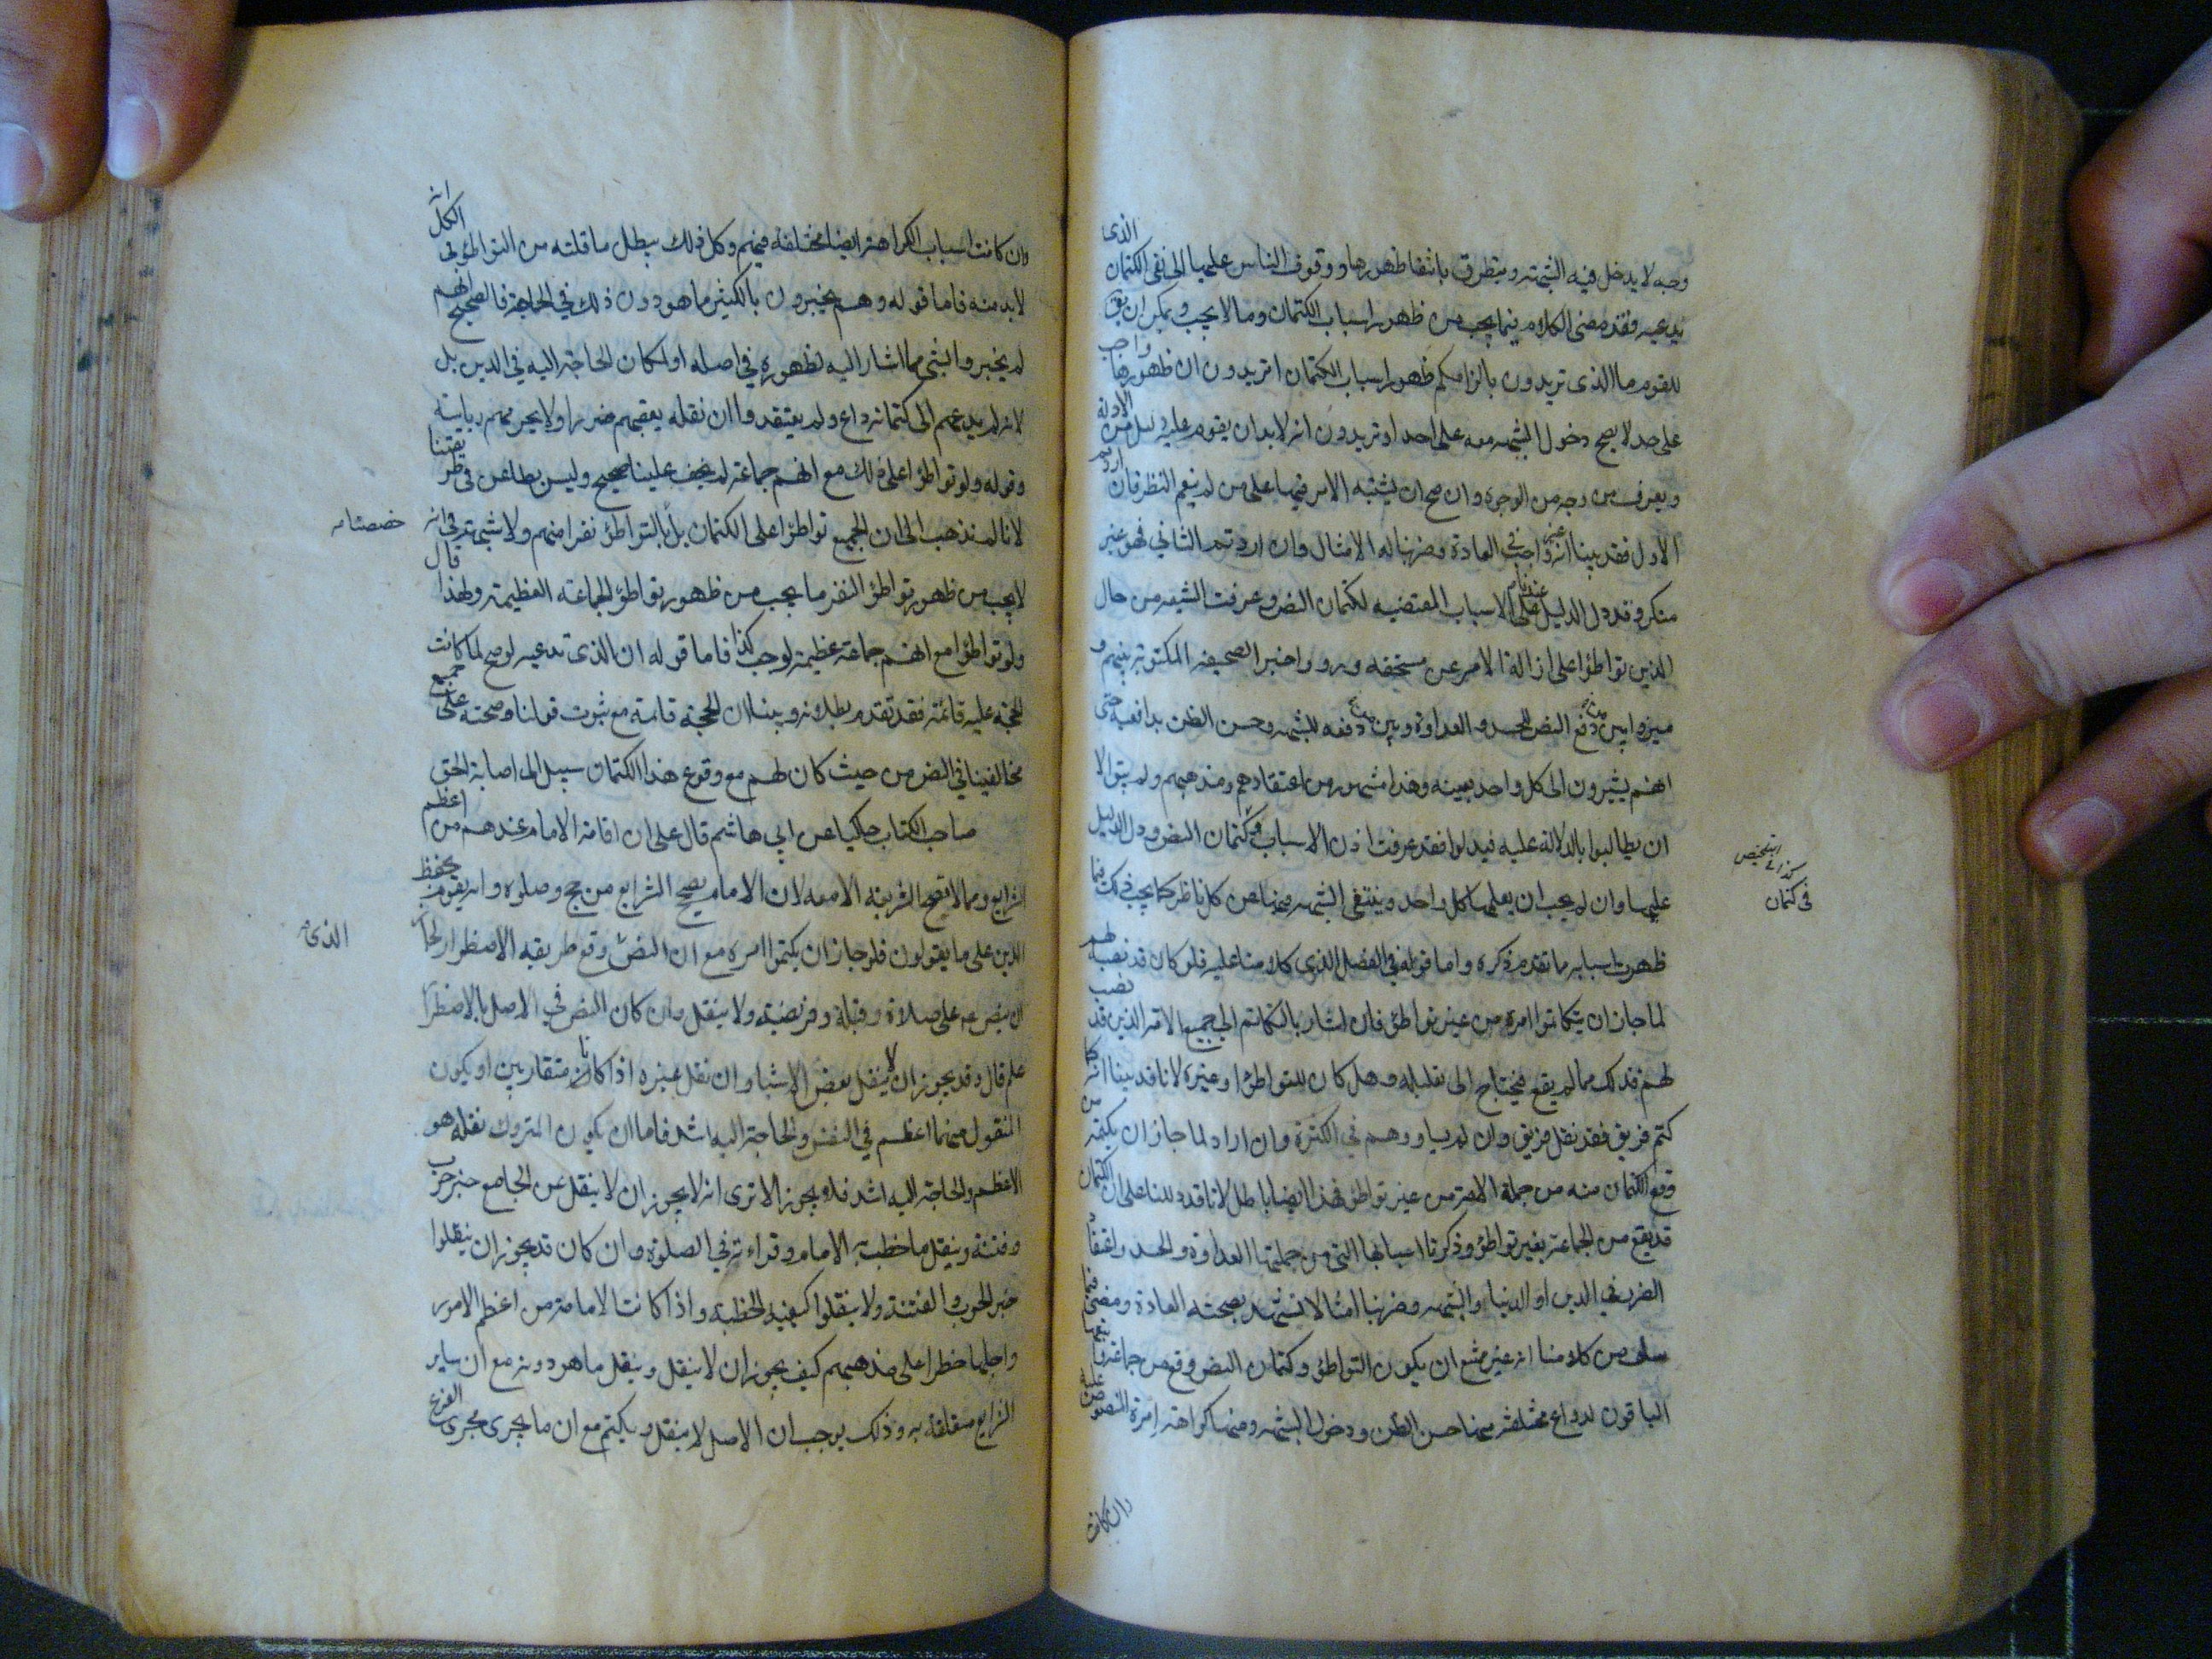 وجه لا يدخل فيه الشبهة ويتطرق بانتفا ظهورها ووقوف الناس عليها الى نفى الكتمان الذى
يدعيه فقد مضى الكلام فيما يجب من ظهور اسباب الكتمان وما لا يجب ويمكن ان يق
للقوم ما الذى تريدون بالزامكم ظهور اسباب الكتمان اتريدون ان ظهورها واجب
على حد لا يصح دخول الشبهه معه على احد او تريدون انه لا بد ان يقوم عليه دليل من الادلة
ويعرف من وجه من الوجوه وان صح ان يشتبه الامر فيها على من لم ينعم النظر فان اردتم
الاول فقد بينا انه غير واجب في العادة وضربنا له الامثال وان اردتم الثانى فهو غير
منكر وقد دل الدليل عندنا على الاسباب المقتضيه لكتمان النص وعرفت الشيعه من حال
الذين تواطؤا على ازالة الامر عن مستحقه ورووا خبر الصحيفه المكتوبة بينهم و
ميزوا بين من دفع النص للحسد والعداوة وبين من دفعه للشبهه وحسن الظن بدافعيه حتى
انهم يشيرون الى كل واحد بعينه وهذا مشهور من اعتقادهم ومذهبهم ولم يبق الا
ان يطالبوا بالدلالة عليه فيدلوا فقد عرفت اذن الاسباب في كتمان النص ودل الدليل
عليها وان لم يجب ان يعلمها كل واحد وينتفى الشبهه عنها عن كل ناظر كما يجب ذلك فيما
ظهرت اسبابه ما تقدم ذكره واما قوله في الفصل الذى كلامنا عليه فلو كان قد نصبه لهم
لما جاز ان يتكاتموا امره من غير تواطؤ فان اشار بالتكاتم الى جميع الامة الذين قد نصب
لهم فذلك مما لم يقع فيحتاج الى تعليله وهل كان للتواطؤ او غيره لانا قد بينا انه كما
كتم فريق فقد نقل فريق وان لم يساووهم في الكثرة وان اراد لما جاز ان يكتمه من
وقع الكتمان منه من جملة الامة من غير تواطؤ فهذا ايضا باطل لانا قد دللنا على ان الكتمان
قد يقع من الجماعة بغير تواطؤ وذكرنا اسبابها التى من جملتها العداوة والحسد واعتقاد
الضرر في الدين او الدنيا والشبهه وضربنا امثالا تشهد بصحته العادة ومضى فيما
سلف من كلامنا انه غير ممتنع ان يكون التواطؤ وكتمان النص وقع من جماعة وتابعها
الباقون لدواع مختلفة منها حسن الظن ودخول الشبهه ومنها كراهة امرة المنصوص عليه
وان كانت
كذا فى التلخيص
فى كتمان
وان كانت اسباب الكراهة ايضا مختلفة فيهم وكل ذلك يبطل ما قلته من التواطؤ فى الكل انه
لا بد منه فاما قوله وهم يخبرون بالكثير ما هو دون ذلك في الحاجة فالصحيح انهم
لم يخبروا بشى مما اشار اليه لظهوره في اصله او لمكان الحاجة اليه في الدين بل
لانه لم يدعهم الى كتمانه داع ولم يعتقدوا ان نقله يعقبهم ضررا ولا يحرمهم رياسته
وقوله ولو تواطؤا على ذلك مع انهم جماعة لم يخف علينا صحيح وليس بطاعن فى طريقتنا
لانا لم نذهب الى ان الجميع تواطؤا على الكتمان بل بالتواطؤ نفرا منهم ولا شبهة فى انه
خصصنا
لا يجب من ظهور تواطؤ النفر ما يجب من ظهور تواطؤ الجماعة العظيمة ولهذا قال
ولو تواطؤا مع انهم جماعة عظيمة لوجب كذا فاما قوله ان الذى تدعيه لو صح لما كانت
الحجة عليه قائمة فقد تقدم بطلانه وبينا ان الحجة قائمة مع ثبوت قولنا وصحته على جميع
مخالفينا في النص من حيث كان لهم مع وقوع هذا الكتمان سبيل الى اصابة الحق
صاحب الكتاب حاكيا عن ابي هاشم قال على ان اقامة الامام عندهم من اعظم
الشرايع ومما لا تصح الشريعة الا معه لان الامام يصحح الشرايع من حج وصلوة وانه يقوم بحفظ
الدين على ما يقولون فلو جاز ان يكتموا امره مع ان النص وقع طريقه الاضطرار لجاز
الذى
ان ينص على صلاة وقبلة وفريضة ولا ينقل وان كان النص في الاصل بالاضطرار
علم قال وقد يجوز ان لا ينقل بعض الاشيا وان نقل غيره اذا كانا متقاربين او يكون
المنقول منهما اعظم في النفس والحاجة اليه اشد فاما ان يكون المتروك نقله هو
الاعظم والحاجة اليه اشد فلا يجوز الا ترى انه لا يجوز ان لا ينقل عن الجامع خبر حرب
وفتنة وينقل ما خطب به الامام وقراءته في الصلوة وان كان قد يجوز ان ينقلوا
خبر الحرب والفتنة ولا ينقلوا كيفية الخطبة واذا كانت الامامة من اعظم الامور
واجلها خطرا على مذهبهم كيف يجوز ان لا ينقل وينقل ما هو دونه مع ان ساير
الشرايع متعلقة به وذلك يوجب ان الاصل لا ينقل ويكتم مع ان ما يجرى مجرى الفرع